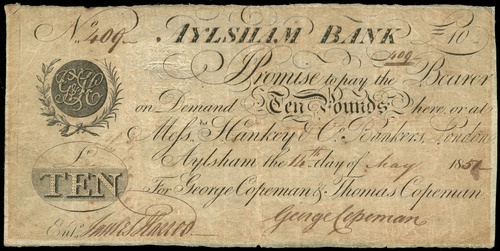 No. 409 AYLSHAM BANK £10
409
I Promise to pay the Bearer
on Demand Ten Pounds here, or at
Messrs. Hankey & Co. Bankers, London
Aylsham the 14th day of May 185
£
TEN
For George Copeman & Thomas Copeman
Entd. George Copeman